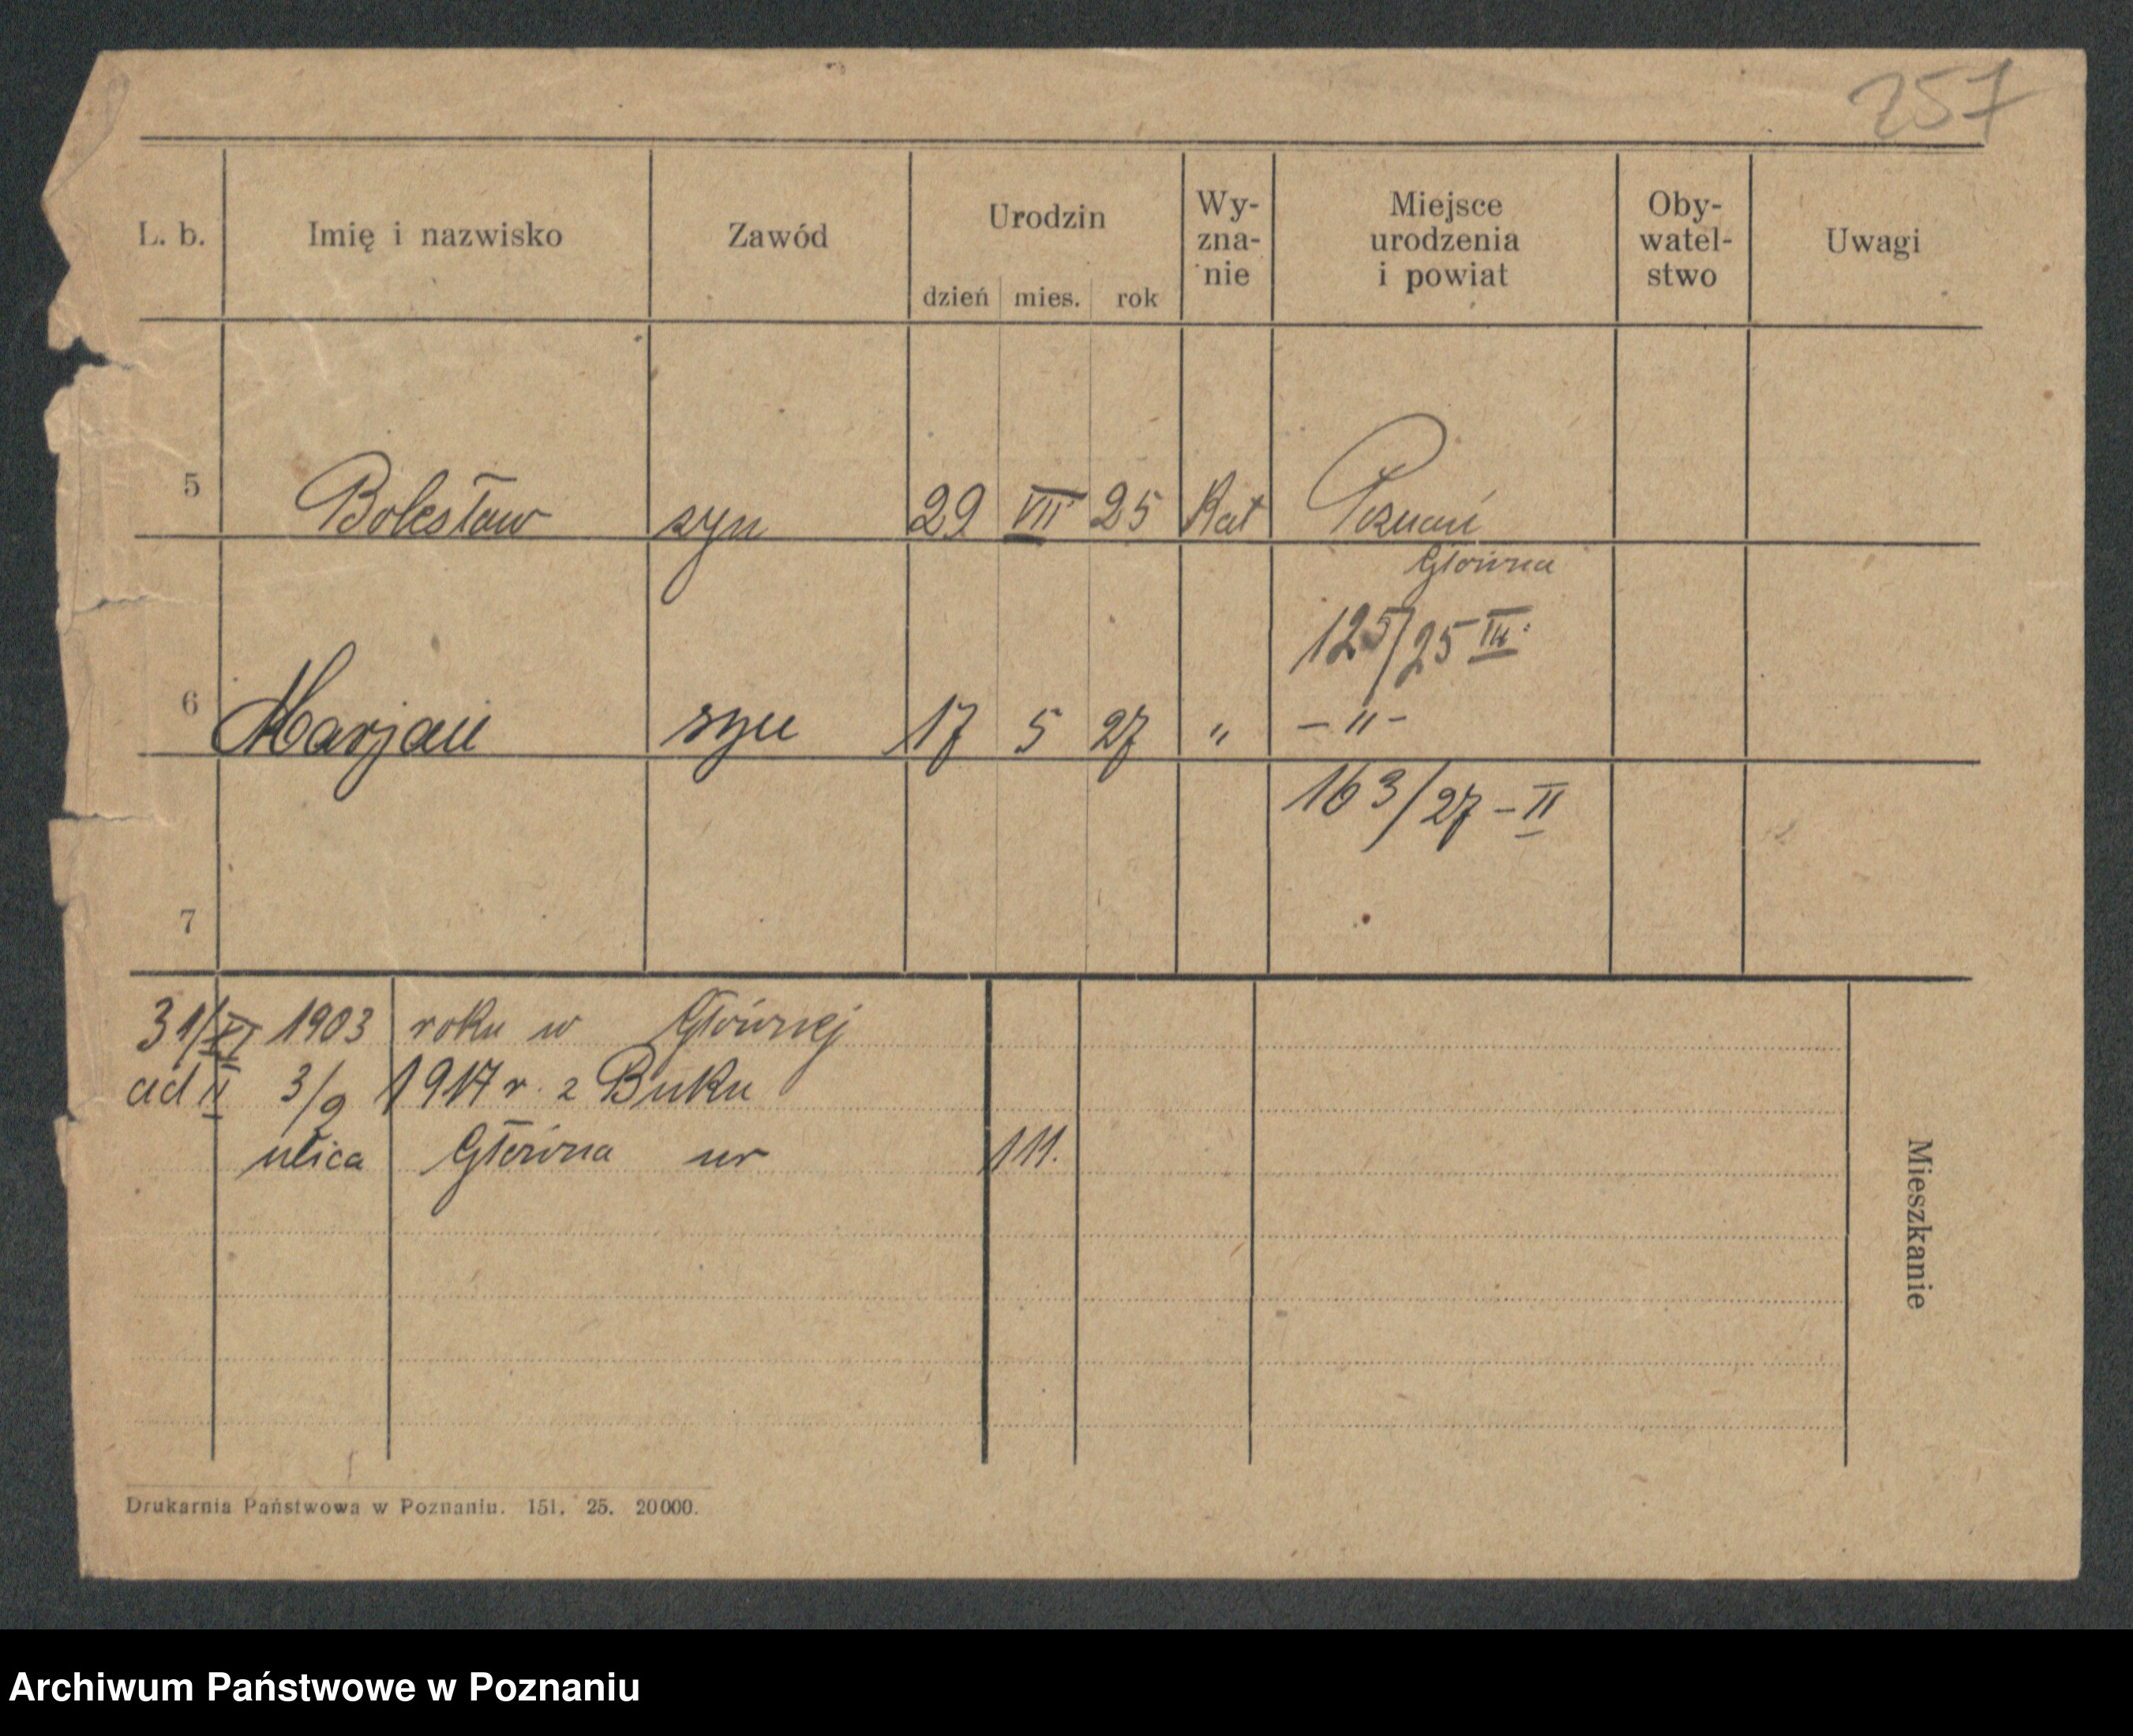 257
L. b. Imię i nazwisko Zawód Urodzin Wy-zna-nie Miejsce urodzenia i powiat Oby-watel-stwo Uwagi
dzień mies. rok
5 Bolesław syn 29 VII 25 Kat Poznań
Główna
125/25 III.
6 Marjan syn 17 5 27 " - " -
163/27 - II
7
31/XI 1903 roku w Głównej
ad II 3/9 1917 r. z Buku
ulica Główna nr 111.
Mieszkanie
Drukarnia Państwowa w Poznaniu. 151. 25. 20000.
Archiwum Państwowe w Poznaniu